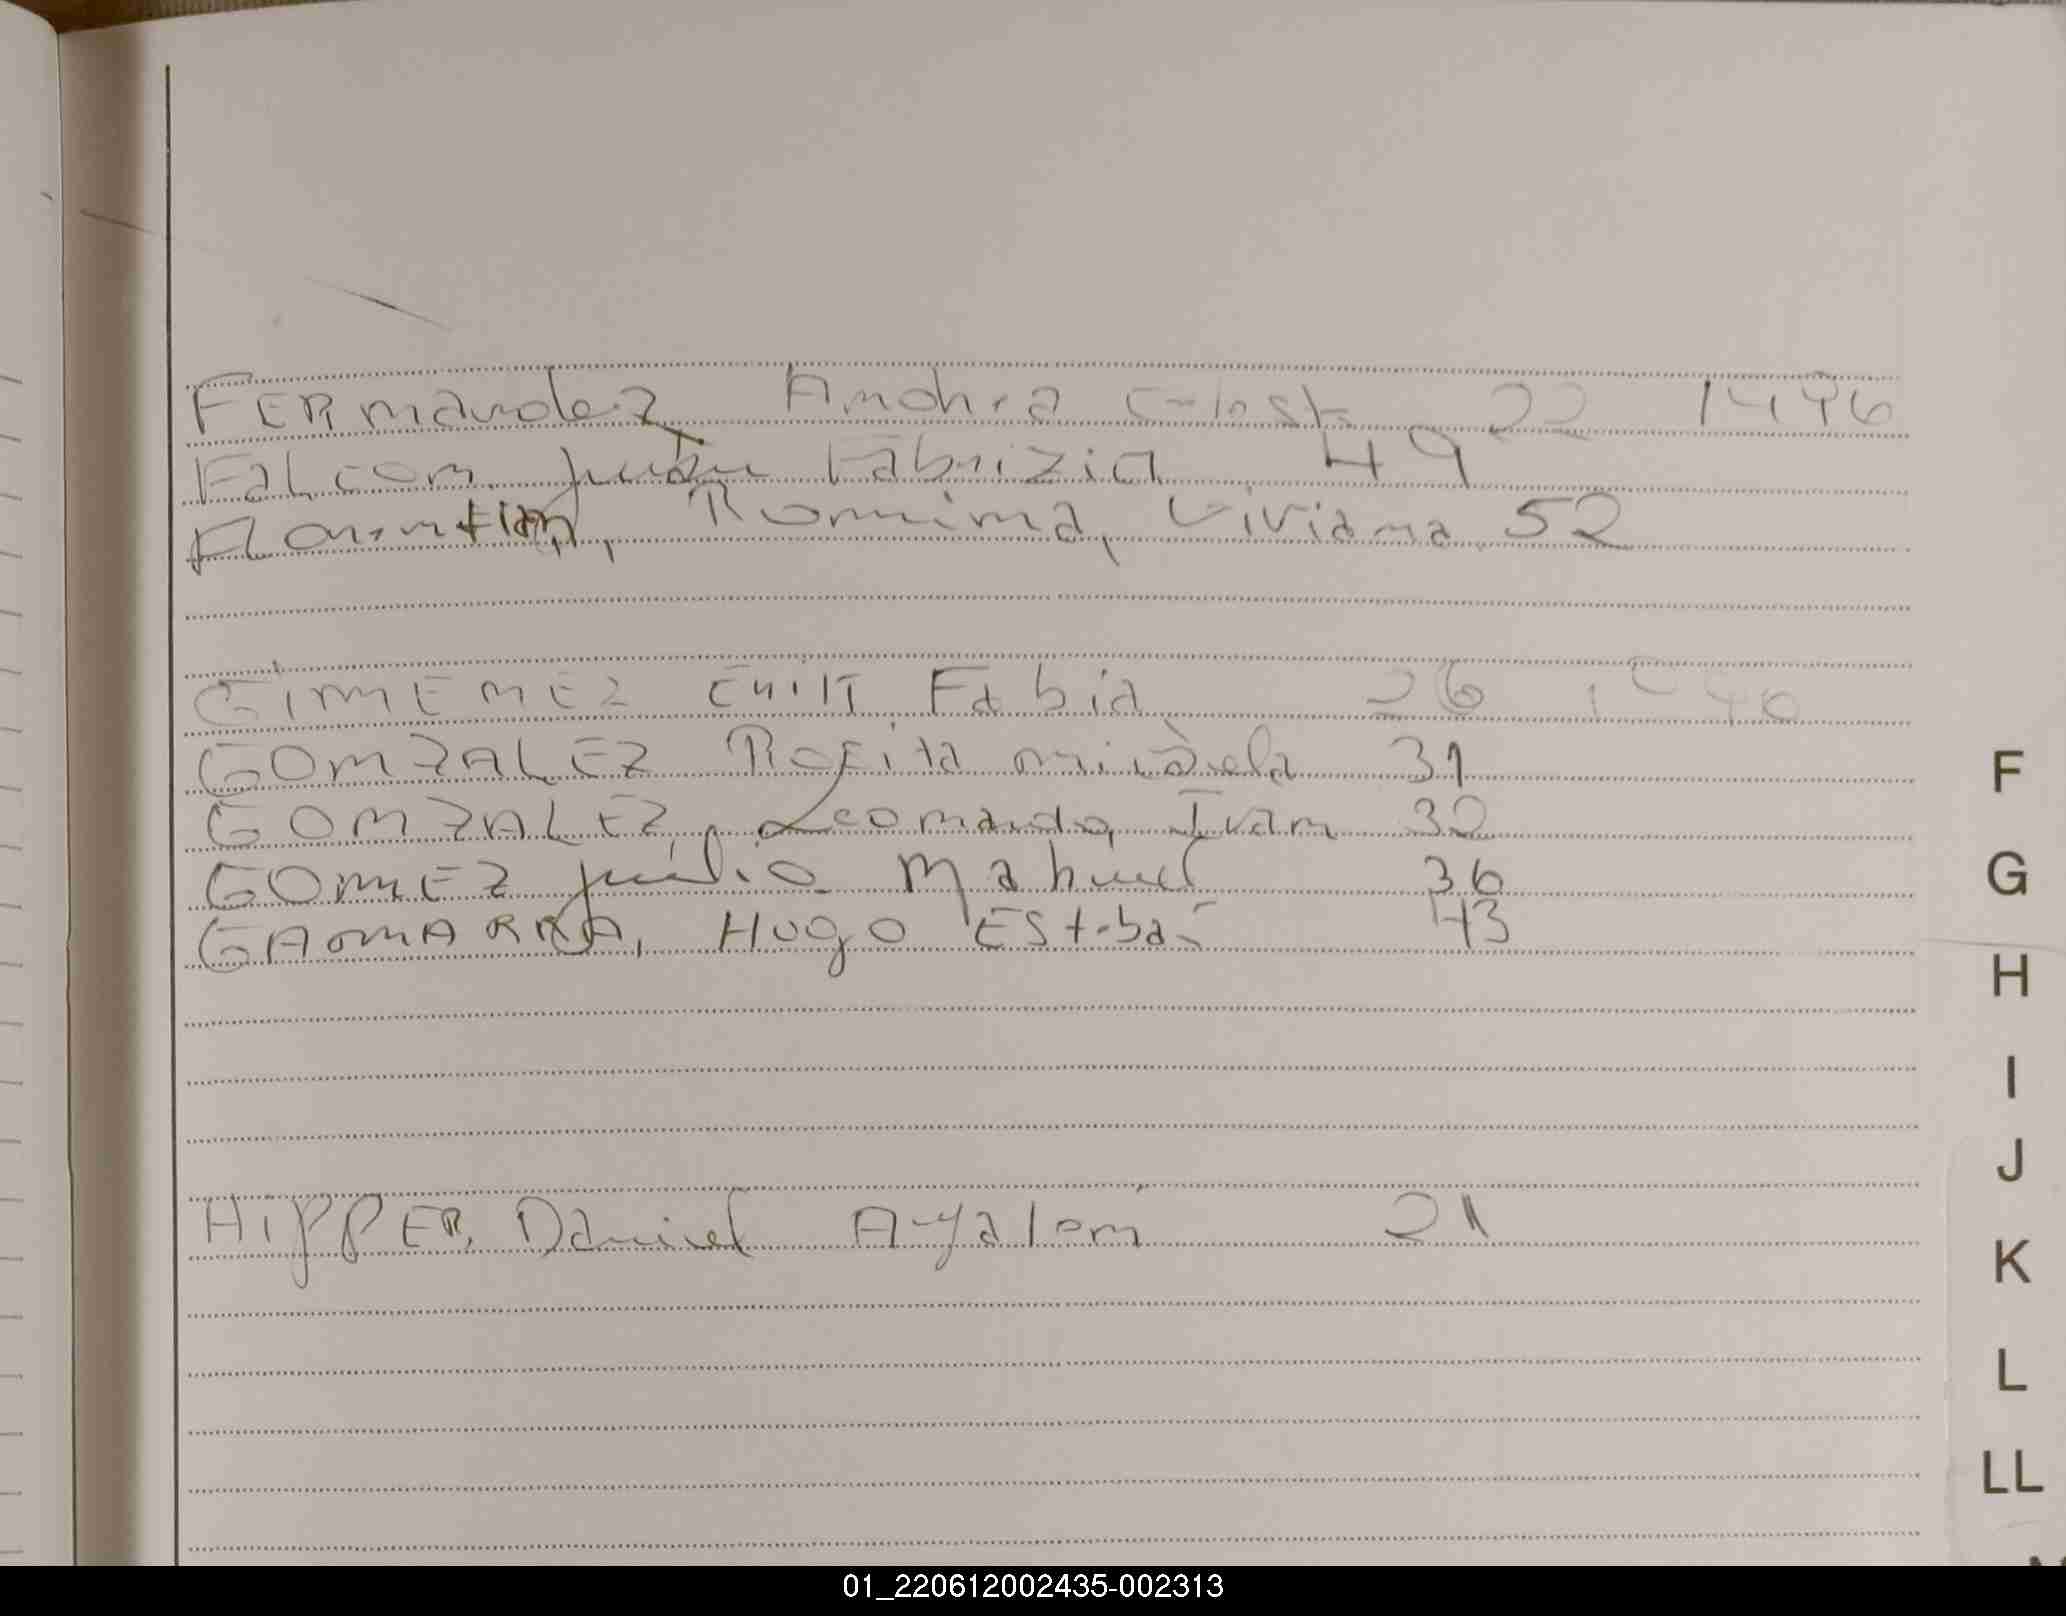 FERNANdez Andrea Celeste 22 1446
Falcon, Juan Fabrizio 49
Romina, Viviana 52
GiMENEZ Fabia 26
GONZALEZ Rosita micaela 31
GONZALEZ, Leonardo, Ivan 32
GOMEZ Julio Manuel 36
GAOMARRA, Hugo Esteban 43
HiPPER, Daniel Ayalem 21
F
G
H
I
J
K
L
LL
01_220612002435-002313